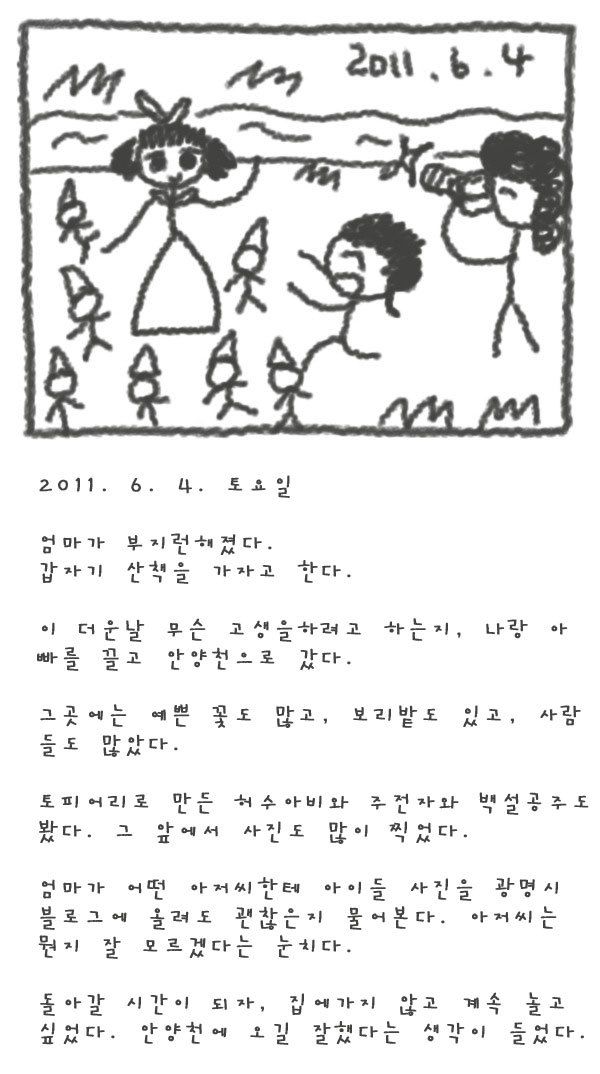 2011.6.4
2011. 6. 4. 토요일
엄마가 부지런해졌다.
갑자기 산책을 가자고 한다.
이 더운날 무슨 고생을하려고 하는지, 나랑 아
빠를 끌고 안양천으로 갔다.
그곳에는 예쁜 꽃도 많고, 보리밭도 있고, 사람
들도 많았다.
토피어리로 만든 허수아비와 주전자와 백설공주도
봤다. 그 앞에서 사진도 많이 찍었다.
엄마가 어떤 아저씨한테 아이들 사진을 광명시
블로그에 올려도 괜찮은지 물어본다. 아저씨는
뭔지 잘 모르겠다는 눈치다.
돌아갈 시간이 되자, 집에가지 않고 계속 놀고
싶었다. 안양천에 오길 잘했다는 생각이 들었다.